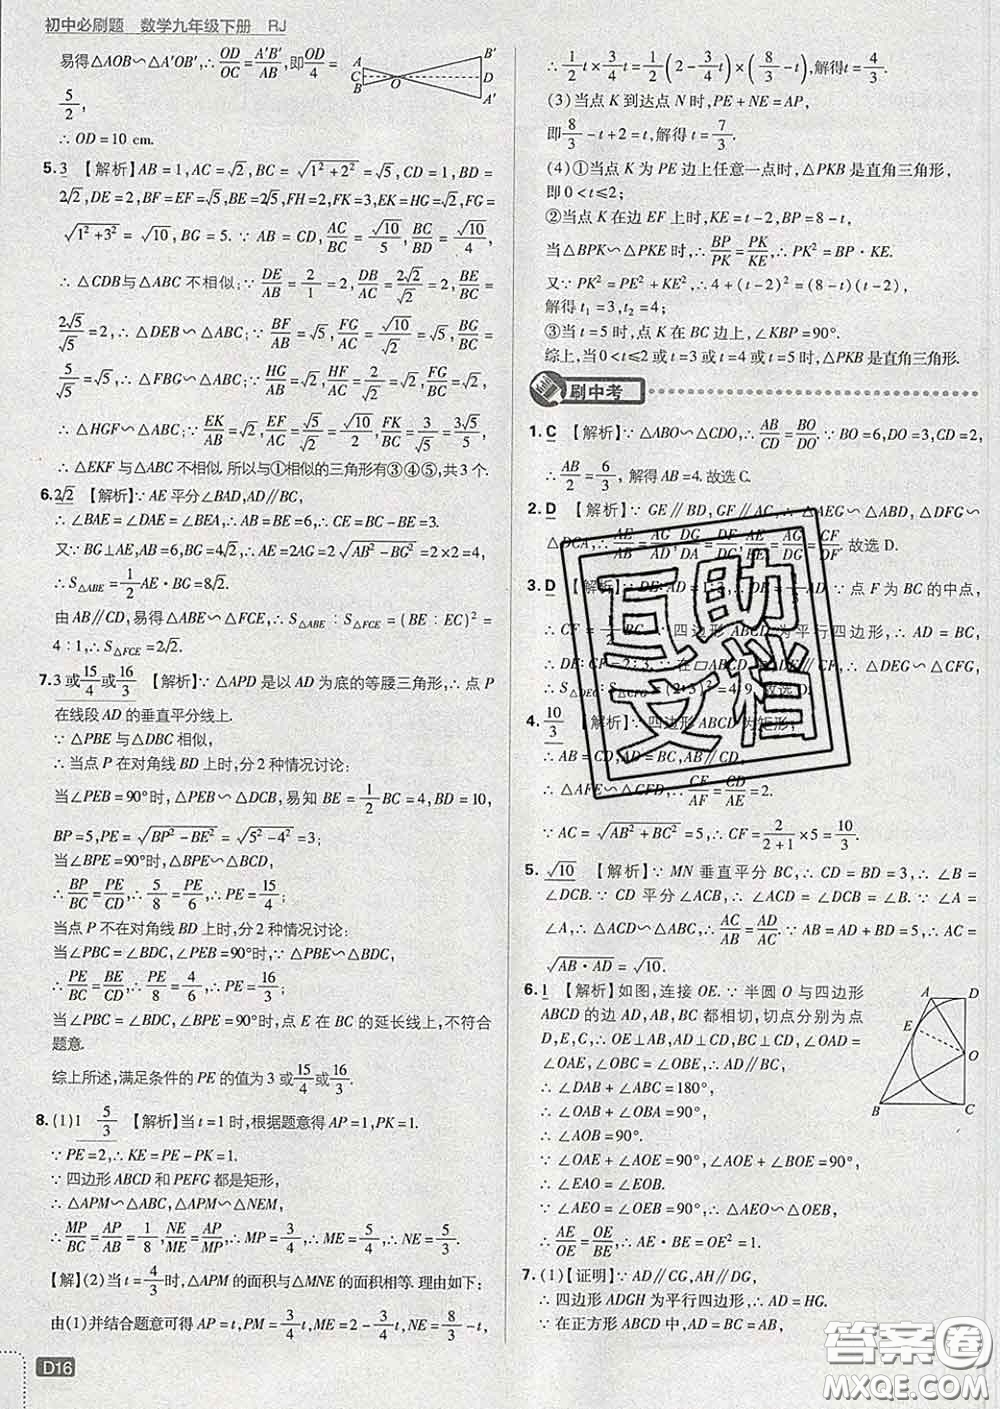 初中必刷题 数学九年级下册 RJ
易得△AOB∽△A'OB',∴ OD/OC = A'B'/AB,即 OD/4 =
5/2,
∴ OD = 10 cm.
A
C
B
O
B'
D
A'
5. 3 【解析】AB = 1,AC = √2,BC = √(1²+2²) = √5,CD = 1,BD =
2√2,DE = 2,BE = 2√5,BF = √5,FH = 2,FK = 3,EK = HG = √2,FG =
√(1²+3²) = √10,BG = 5. ∵ AB = CD, AC/BC = √10/5, BC/BD = √10/4,
∴ △CDB 与△ABC 不相似;∵ DE/AB = 2/1 = 2, DB/AC = 2√2/√2 = 2, BE/BC =
2√5/√5 = 2,∴ △DEB∽△ABC;∵ BF/AB = √5, FG/AC = √10/√2 = √5, BG/BC =
5/√5 = √5,∴ △FBG∽△ABC;∵ HG/AB = √2, HF/AC = √2, FG/BC = √2,
∴ △HGF∽△ABC;∵ EK/AB = √2, EF/AC = √5/√2 = √10/2, FK/BC = 3/√5 = 3√5/5,
∴ △EKF 与△ABC 不相似. 所以与①相似的三角形有③④⑤,共 3 个.
6. 2√2 【解析】∵ AE 平分∠BAD,AD∥BC,
∴ ∠BAE = ∠DAE = ∠BEA,∴ AB = BE = 6,∴ CE = BC - BE = 3.
又∵ BG⊥AE,AB = 6,BG = 4√2,∴ AE = 2AG = 2√(AB²-BG²) = 2×2 = 4,
∴ S△ABE = 1/2 AE·BG = 8√2.
由 AB∥CD,易得△ABE∽△FCE,∴ S△ABE : S△FCE = (BE : EC)² =
4 : 1,∴ S△FCE = 2√2.
7. 3 或 15/4 或 16/3 【解析】∵ △APD 是以 AD 为底的等腰三角形,∴ 点 P
在线段 AD 的垂直平分线上.
∵ △PBE 与△DBC 相似,
∴ 当点 P 在对角线 BD 上时,分 2 种情况讨论:
当∠PEB = 90°时,△PEB∽△DCB,易知 BE = 1/2 BC = 4,BD = 10,
BP = 5,PE = √(BP²-BE²) = √(5²-4²) = 3;
当∠BPE = 90°时,△BPE∽△BCD,
∴ BP/BC = PE/CD,∴ 5/8 = PE/6,∴ PE = 15/4;
当点 P 不在对角线 BD 上时,分 2 种情况讨论:
当∠PBC = ∠BDC,∠PEB = 90°时,△PBE∽△BDC,
∴ PE/BC = BE/CD,∴ PE/8 = 4/6,∴ PE = 16/3;
当∠PBC = ∠BDC,∠BPE = 90°时,点 E 在 BC 的延长线上,不符合
题意.
综上所述,满足条件的 PE 的值为 3 或 15/4 或 16/3.
8. (1) 1 5/3 【解析】当 t = 1 时,根据题意得 AP = 1,PK = 1.
∵ PE = 2,∴ KE = PE - PK = 2 - 1 = 1.
∵ 四边形 ABCD 和 PEFG 都是矩形,
∴ △APM∽△ABC,△APM∽△NEM,
∴ MP/BC = AP/AB = 1/8, NE/ME = AP/MP,∴ MP = 3/4,∴ ME = 5/4,∴ NE = 5/3.
【解】(2) 当 t = 4/3 时,△APM 的面积与△MNE 的面积相等. 理由如下:
由(1)并结合题意可得 AP = t,PM = 3/4 t,ME = 2 - 3/4 t,NE = 8/3 - t,
∴ 1/2 t × 3/4 t = 1/2 (2 - 3/4 t) × (8/3 - t),解得 t = 4/3.
(3) 当点 K 到达点 N 时,PE + NE = AP,
即 8/3 - t + 2 = t,解得 t = 7/3.
(4) ①当点 K 为 PE 边上任意一点时,△PKB 是直角三角形,
即 0 < t ≤ 2;
②当点 K 在边 EF 上时,KE = t - 2,BP = 8 - t,
当△BPK∽△PKE 时,∴ BP/PK = PK/KE,∴ PK² = BP·KE.
又∵ PK² = PE² + KE²,∴ 4 + (t-2)² = (8-t)(t-2),
解得 t₁ = 3,t₂ = 4;
③当 t = 5 时,点 K 在 BC 边上,∠KBP = 90°.
综上,当 0 < t ≤ 2 或 t = 3 或 t = 4 或 t = 5 时,△PKB 是直角三角形.
刷中考
1. C 【解析】∵ △ABO∽△CDO,∴ AB/CD = BO/DO. ∵ BO = 6,DO = 3,CD = 2,
∴ AB/2 = 6/3,解得 AB = 4. 故选 C.
2. D 【解析】∵ GE∥BD,GF∥AC,∴ △AEG∽△ABD,△DFG∽
△DCA,∴ 故选 D.
3. D 【解析】∵ DE : AD = ∵ 点 F 为 BC 的中点,
∴ CF = 四边形 ABCD 为平行四边形,
∴ DE : CF = 2 : 3,∵ 在▱ABCD 中, △DEG∽△CFG,
∴ S△DEG : S△CFG = (2÷3)² = 4 : 9, 故选 D.
4. 10/3 【解析】∵ 四边形 ABCD 为矩形,
∴ AB = CD,AD = BC,AB∥CD,
∴ △AFE∽△CFD,∴ CF/AF = CD/AE = 2.
∵ AC = √(AB²+BC²) = 5,∴ CF = 2/(2+1) × 5 = 10/3.
5. √10 【解析】∵ MN 垂直平分 BC,∴ CD = BD = 3,∴ ∠B =
∠DCB. ∵ CD 平分∠ACB,∴ ∠ACD = ∠DCB = ∠B. ∵ ∠A =
∠A,∴ △ACD∽△ABC,∴ AC/AB = AD/AC. ∵ AB = AD + BD = 5,∴ AC =
√(AB·AD) = √10.
6. 1 【解析】如图,连接 OE. ∵ 半圆 O 与四边形
ABCD 的边 AD,AB,BC 都相切,切点分别为点
D,E,C,∴ OE⊥AB,AD⊥CD,BC⊥CD,∠OAD =
∠OAE,∠OBC = ∠OBE,∴ AD∥BC,
∴ ∠DAB + ∠ABC = 180°,
∴ ∠OAB + ∠OBA = 90°,
∴ ∠AOB = 90°.
∵ ∠OAE + ∠AOE = 90°,∠AOE + ∠EOB = 90°,
∴ ∠EAO = ∠EOB.
∵ ∠AEO = ∠OEB = 90°,∴ △AEO∽△OEB,
∴ AE/OE = OE/BE,∴ AE·BE = OE² = 1.
A
D
E
O
B
C
7. (1)【证明】∵ AD∥CG,AH∥DG,
∴ 四边形 ADGH 为平行四边形,∴ AD = HG.
∵ 在正方形 ABCD 中,AD = BC,
D16
互助
文档
答案圈
MXQE.COM